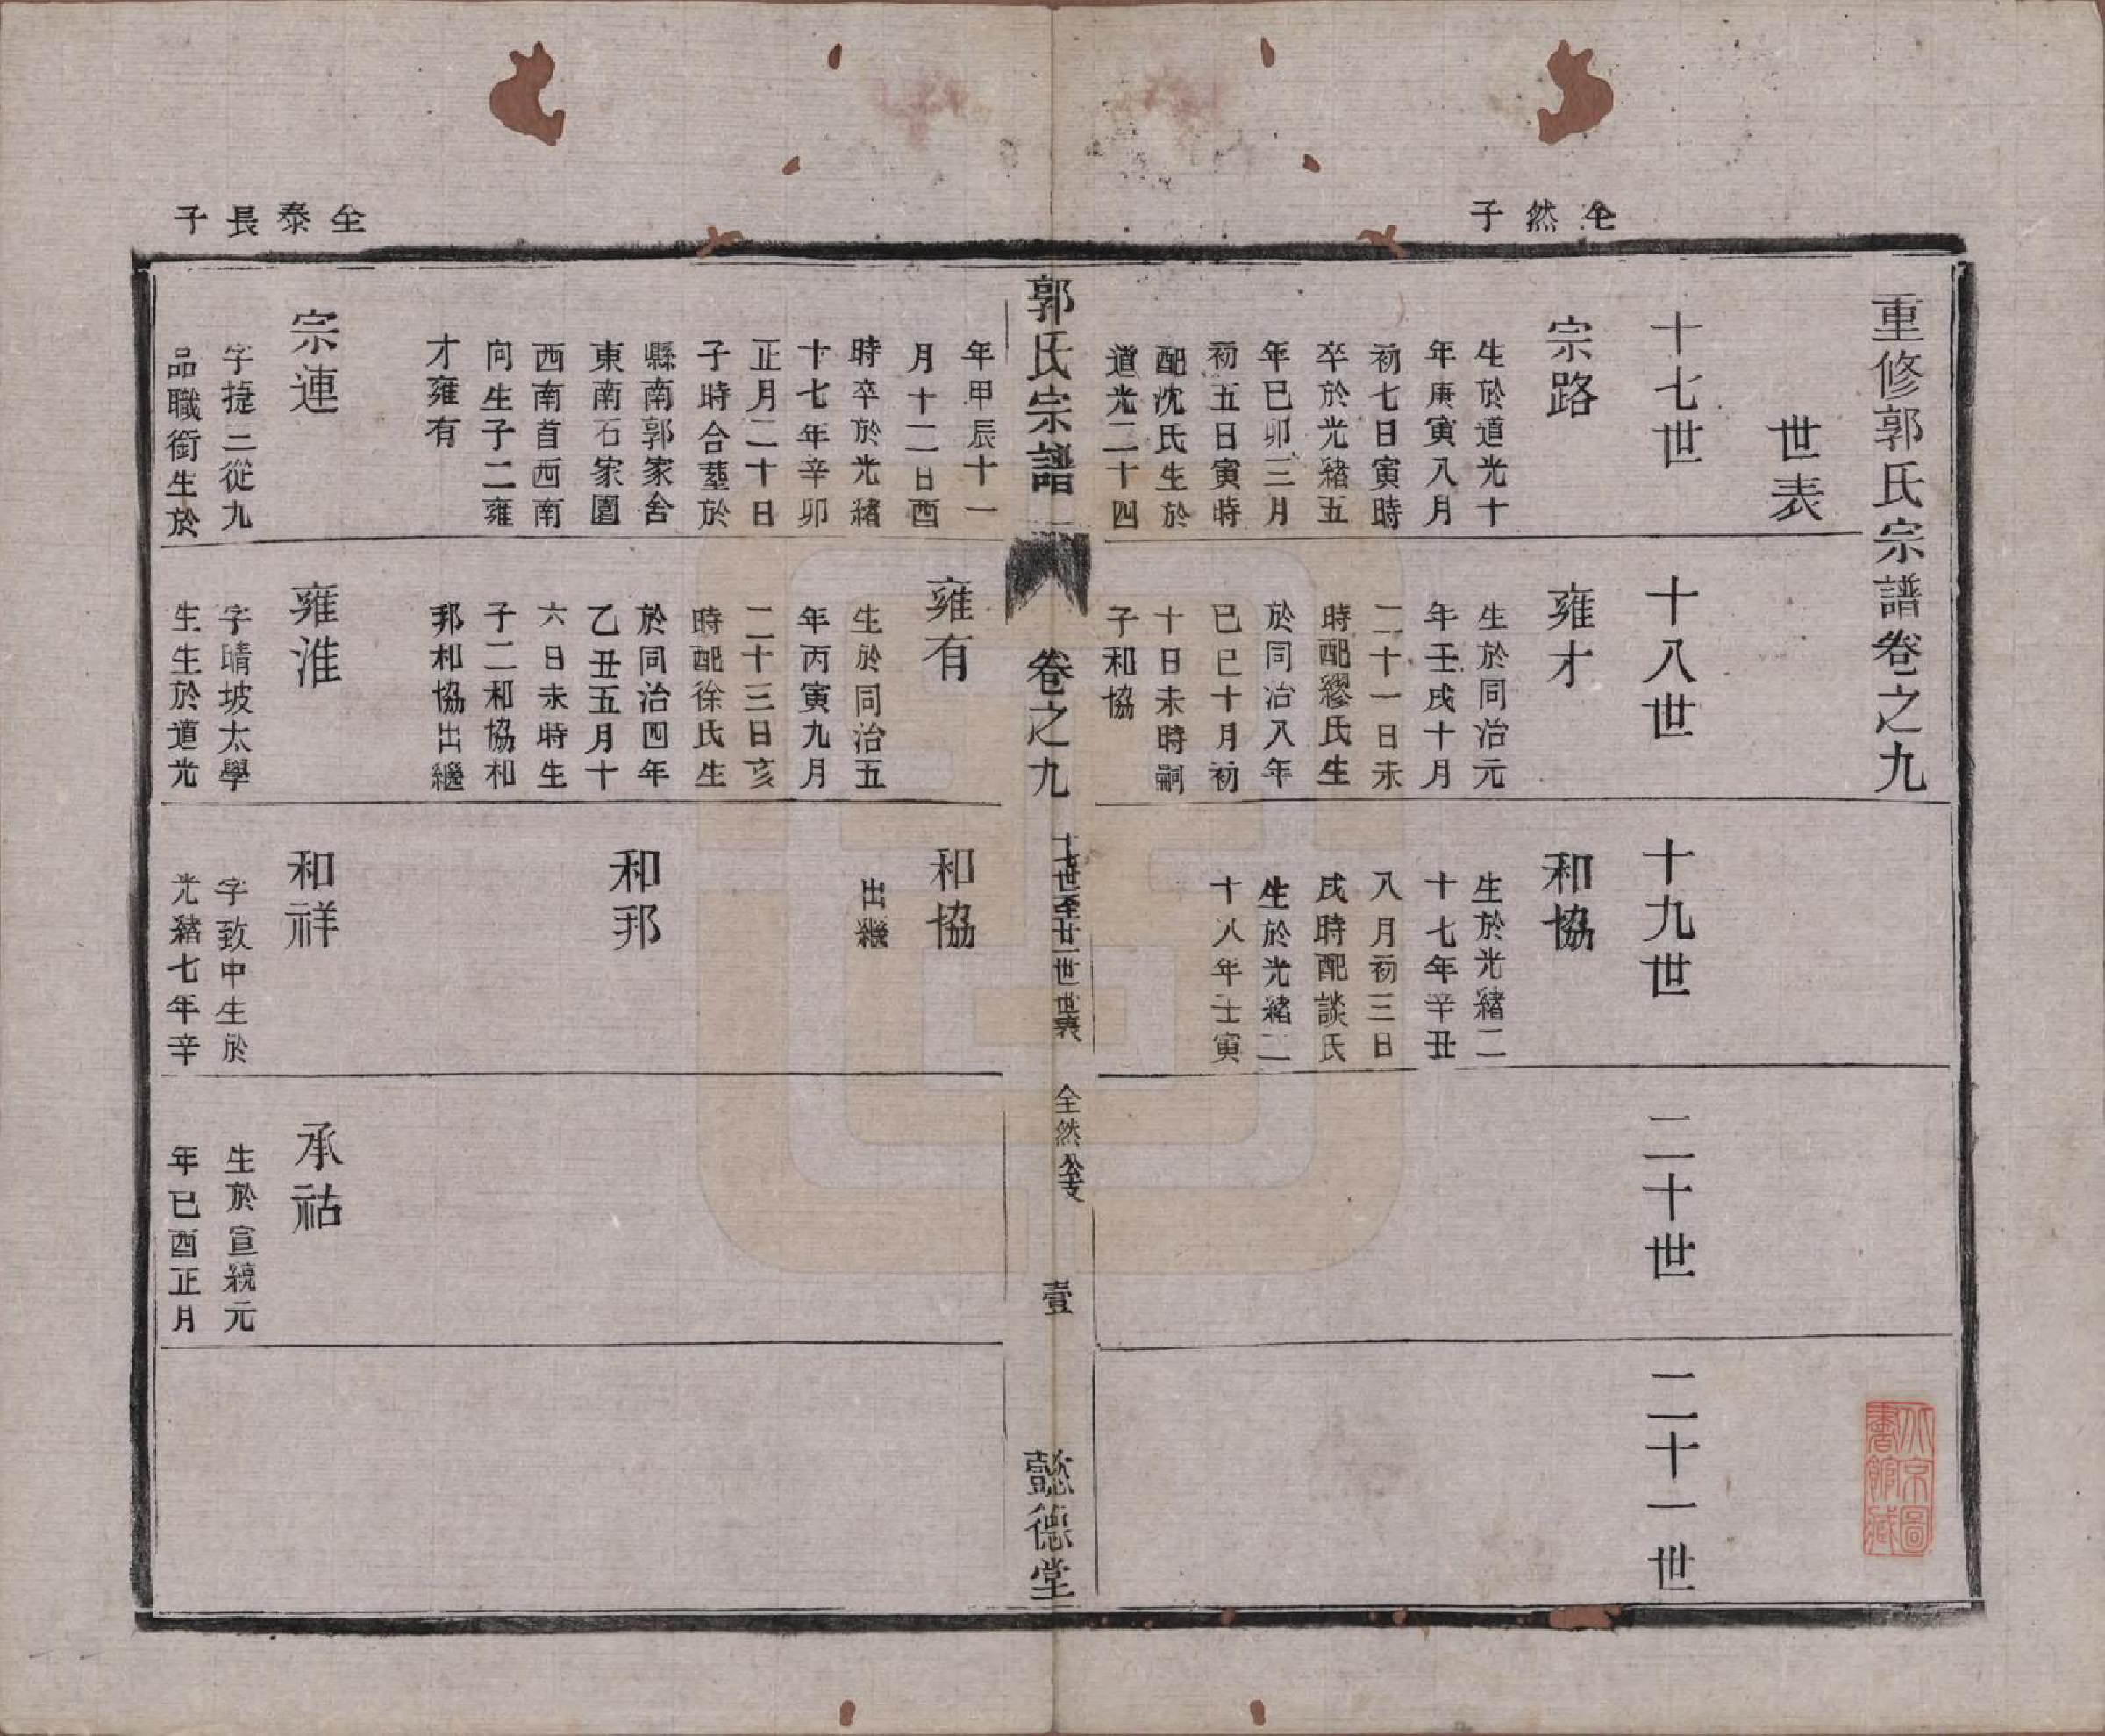 重修郭氏宗譜卷之九
世表
十七世
十八世
十九世
二十世
二十一世
仝然子
宗路
生於道光十
年庚寅八月
初七日寅時
卒於光緒五
年巳卯三月
初五日寅時
配沈氏生於
道光二十四
雍才
生於同治元
年壬戌十月
二十一日未
時配繆氏生
於同治八年
已巳十月初
十日未時嗣
子和協
和協
生於光緒二
十七年辛丑
八月初三日
戌時配談氏
生於光緒二
十八年壬寅
郭氏宗譜
卷之九
十七世至廿一世世表
全然公支
壹
懿德堂
年甲辰十一
月十二日酉
時卒於光緒
十七年辛卯
正月二十日
子時合塟於
縣南郭家舍
東南石家園
西南首西南
向生子二雍
才雍有
雍有
生於同治五
年丙寅九月
二十三日亥
時配徐氏生
於同治四年
乙丑五月十
六日未時生
子二和協和
邦和協出繼
和協
出繼
和邦
仝泰長子
宗連
字捷三從九
品職銜生於
雍淮
字晴坡太學
生生於道光
和祥
字致中生於
光緒七年辛
承祜
生於宣統元
年已酉正月
北京圖
書館藏